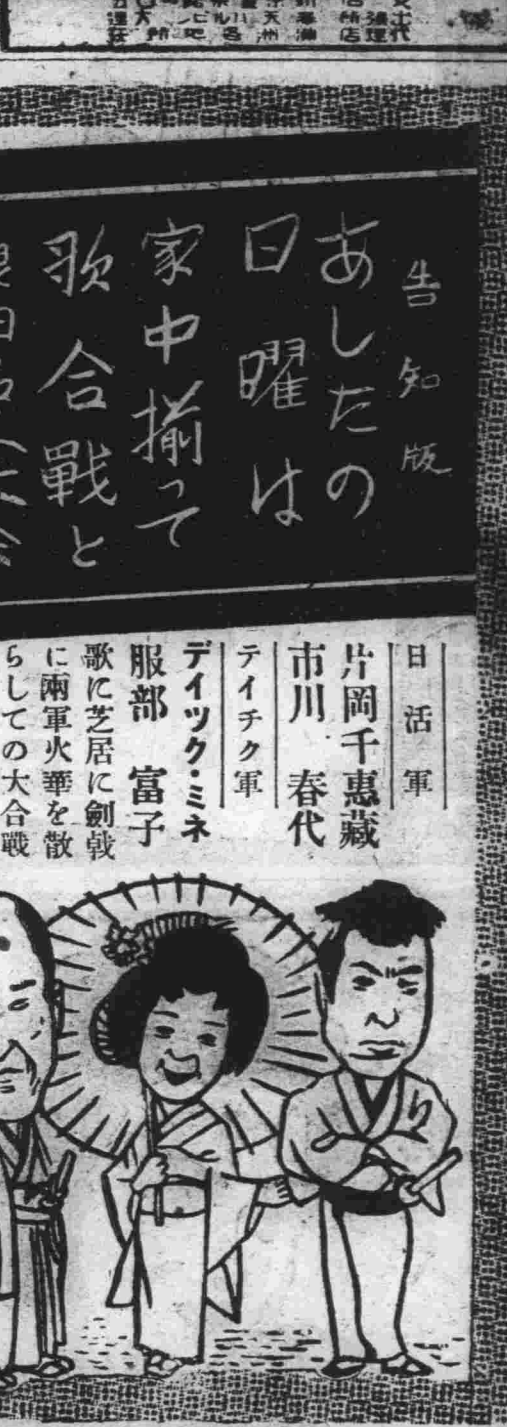 告知版
あしたの
日曜は
家中揃って
歌合戰と
日活軍
片岡千惠藏
市川春代
テイチク軍
デイツク・ミネ
服部富子
歌に芝居に劍戟
に兩軍火華を散
らしての大合戰